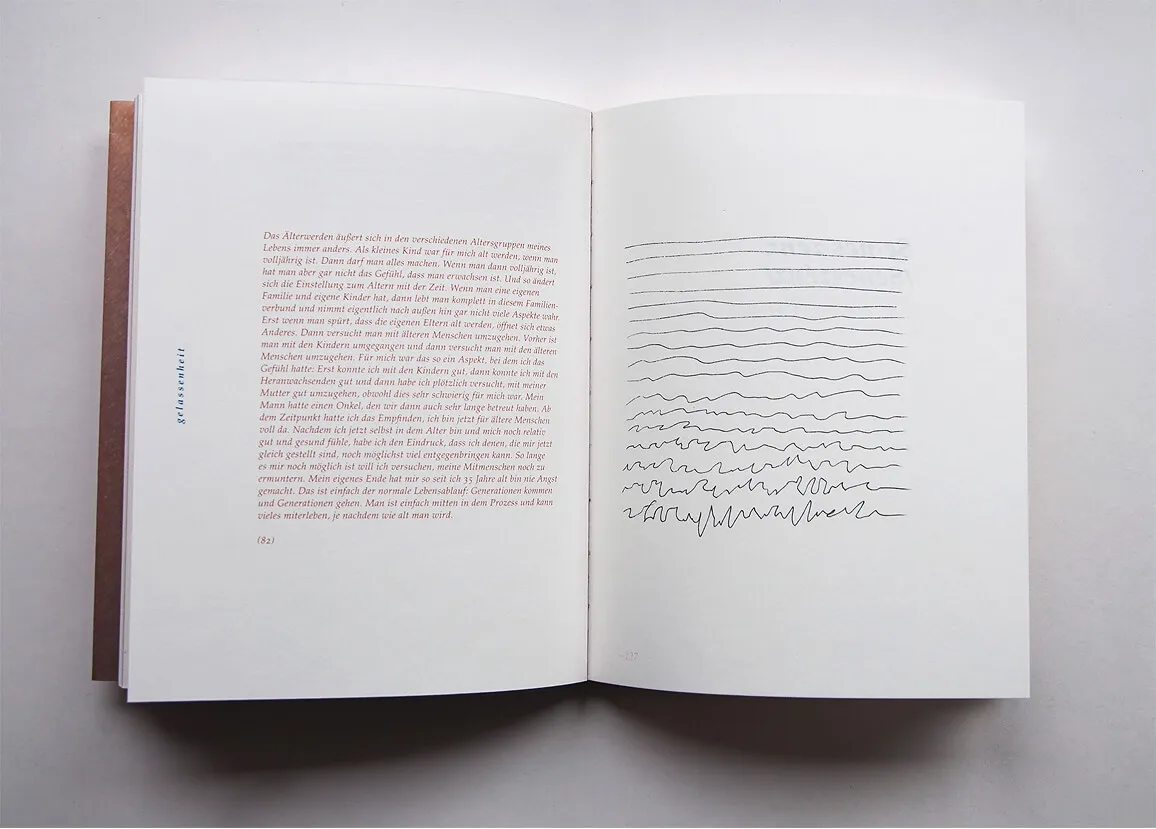 gelassenheit
Das Älterwerden äußert sich in den verschiedenen Altersgruppen meines
Lebens immer anders. Als kleines Kind war für mich alt werden, wenn man
volljährig ist. Dann darf man alles machen. Wenn man dann volljährig ist,
hat man aber gar nicht das Gefühl, dass man erwachsen ist. Und so ändert
sich die Einstellung zum Altern mit der Zeit. Wenn man eine eigene
Familie und eigene Kinder hat, dann lebt man komplett in diesem Familien-
verbund und nimmt eigentlich nach außen hin gar nicht viele Aspekte wahr
Erst wenn man spürt, dass die eigenen Eltern alt werden, öffnet sich etwas
Anderes. Dann versucht man mit älteren Menschen umzugehen. Vorher ist
man mit den Kindern umgegangen und dann versucht man mit den älteren
Menschen umzugehen. Für mich war das so ein Aspekt, bei dem ich das
Gefühl hatte: Erst konnte ich mit den Kindern gut, dann konnte ich mit den
Heranwachsenden gut und dann habe ich plötzlich versucht, mit meiner
Mutter gut umzugehen, obwohl dies sehr schwierig für mich war. Mein
Mann hatte einen Onkel, den wir dann auch sehr lange betreut haben. Ab
den Zeitpunkt hatte ich das Empfinden, ich bin jetzt für ältere Menschen
voll da. Nachdem ich jetzt selbst in dem Alter bin und mich noch relativ
gut und gesund fühle, habe ich den Eindruck, dass ich denen, die mir jetzt
gleich gestellt sind, noch möglichst viel entgegenbringen kann. So lange
es mir noch möglich ist will ich versuchen, meine Mitmenschen noch zu
ermuntern. Mein eigenes Ende hat mir so seit ich 35 Jahre alt bin nie Angst
gemacht. Das ist einfach der normale Lebensablauf: Generationen kommen
und Generationen gehen. Man ist einfach mitten in dem Prozess und kann
vieles miterleben, je nachdem wie alt man wird.
(82)